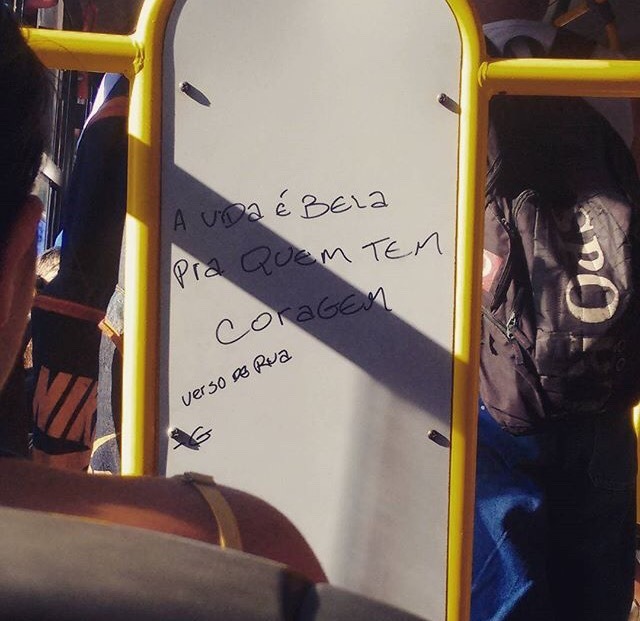 A viDa é BELa
pra QUEM TEM
CoraGEM
verso de Rua
XG
NIK